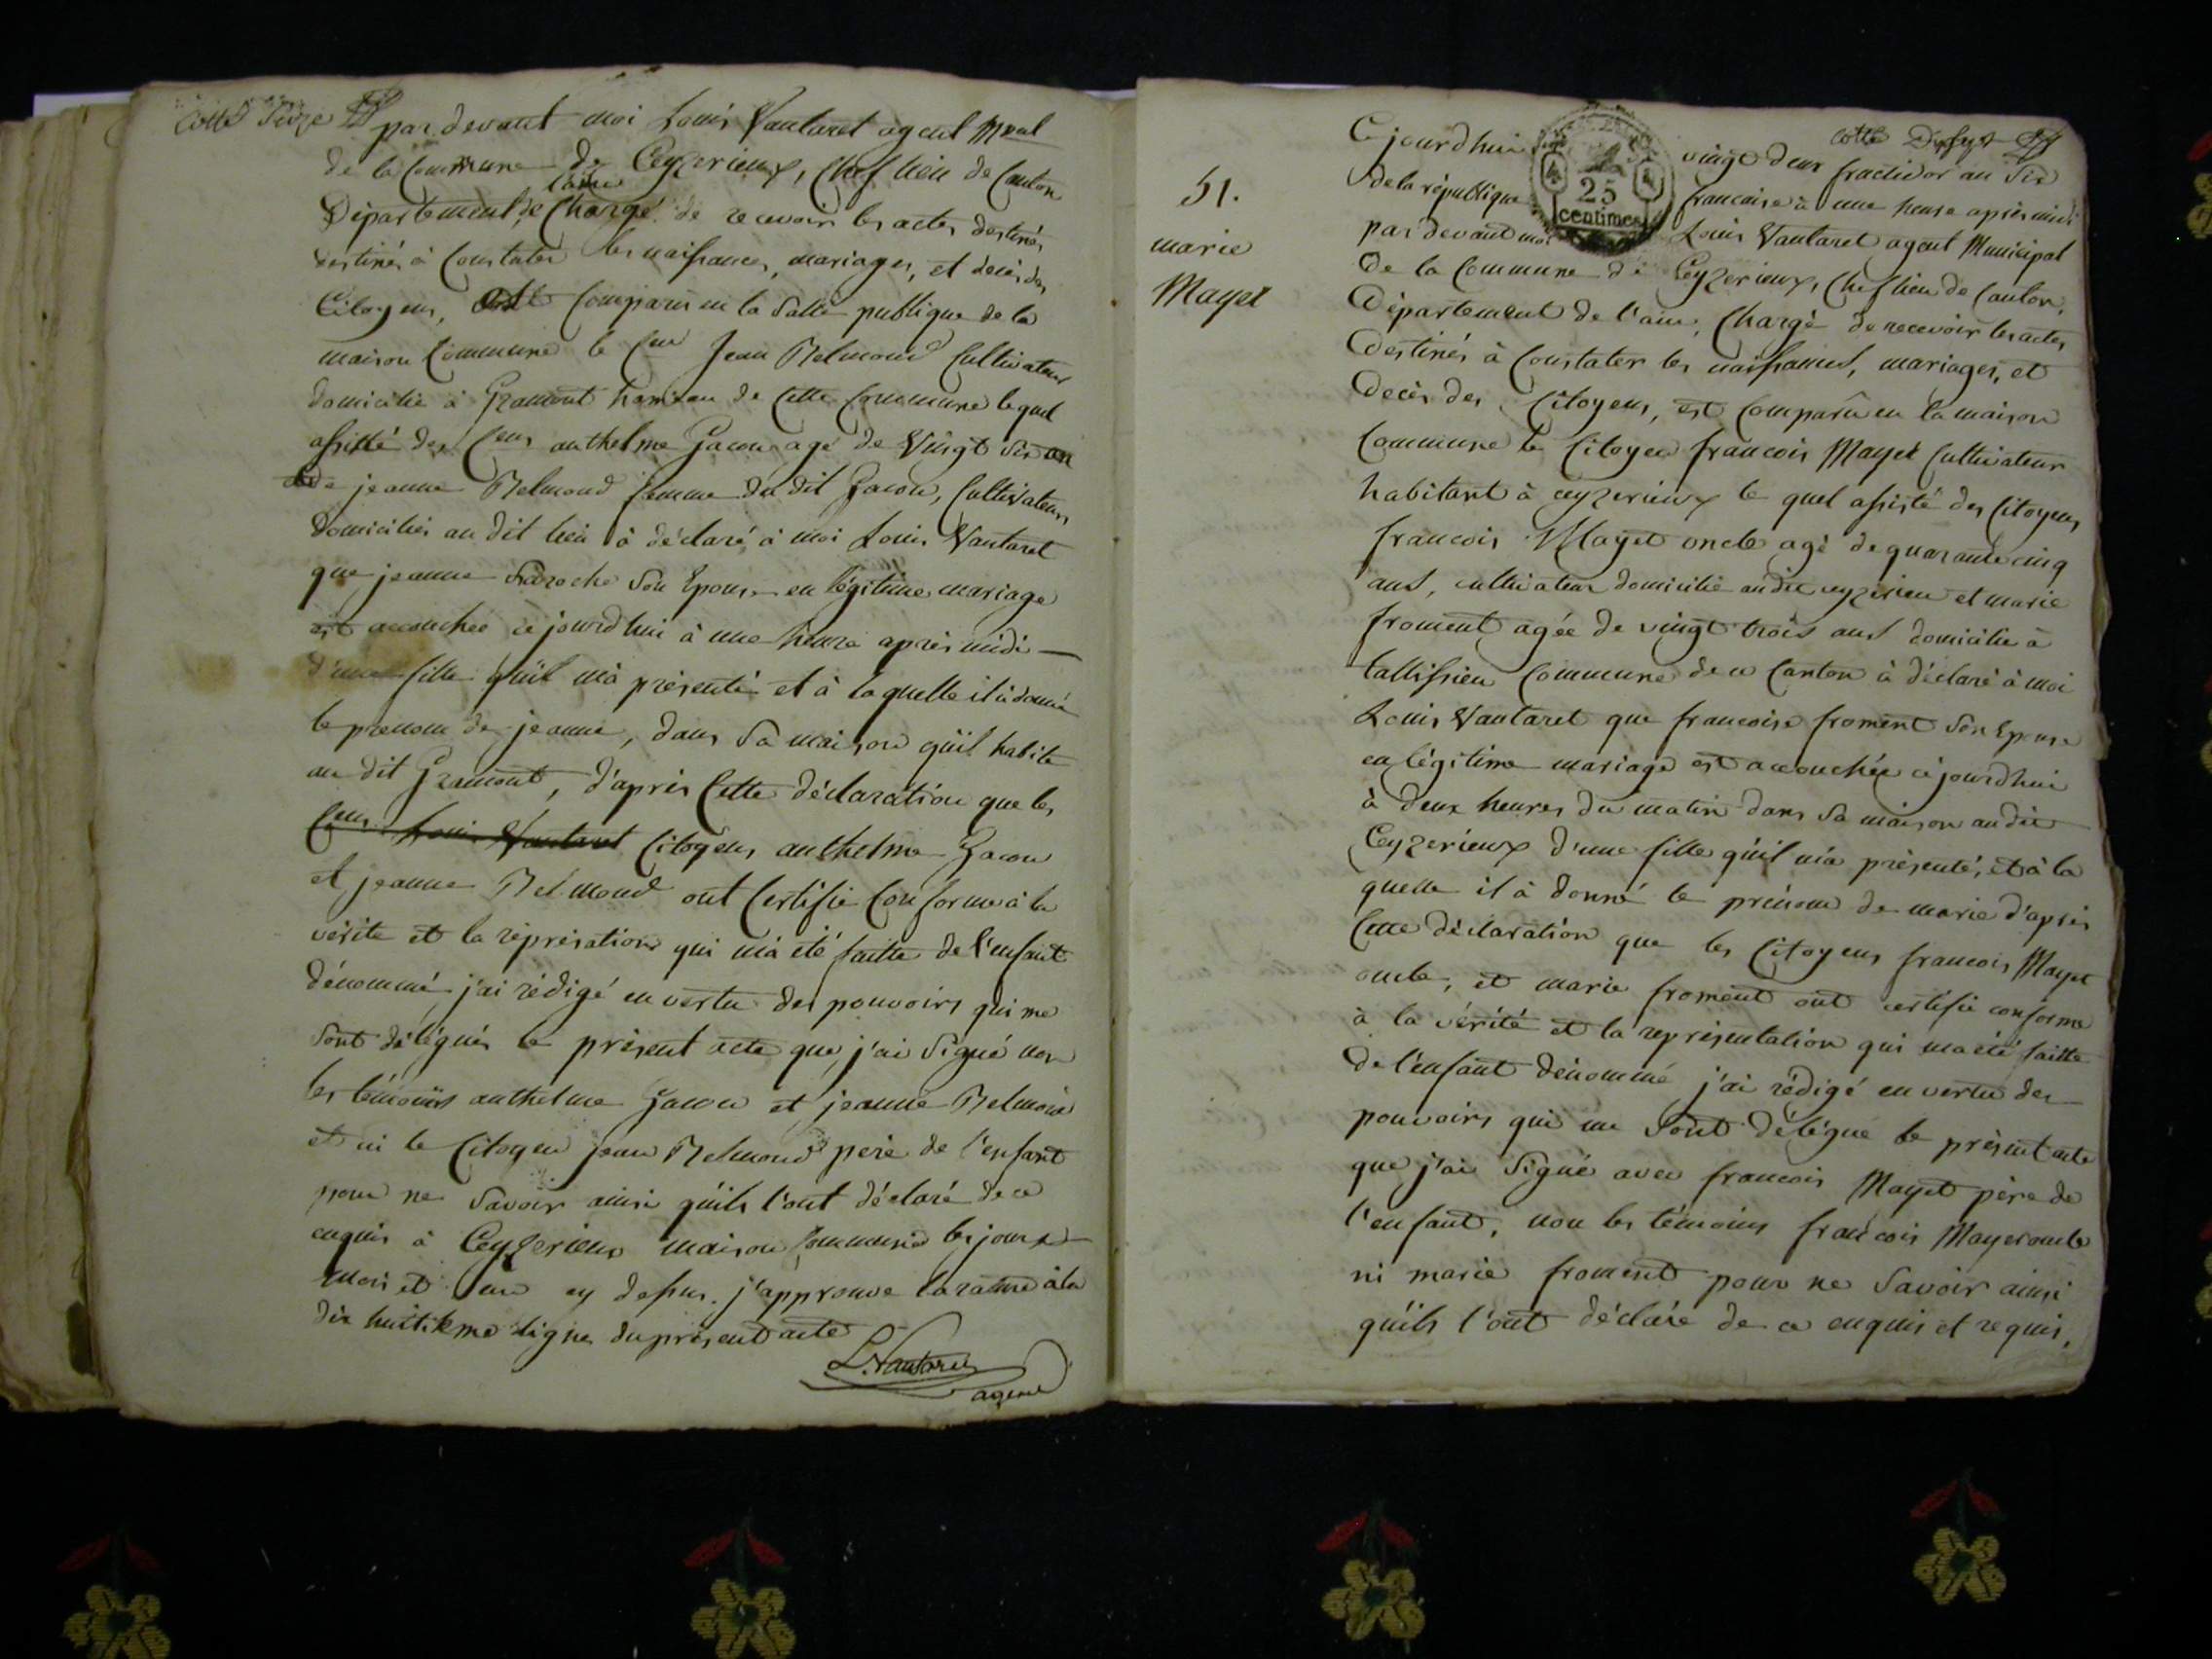 Cotte Seize
par devant moi Louis Vautaret agent Mpal
de la Commune de Ceyzerieux, Chef lieu de Canton
Département de l'ain Chargé de recevoir les actes destinés
destinés à Constater les naissances, mariages, et décès des
Citoyens, est Comparu en la Salle publique de la
maison Commune le Cen Jean Relmond Cultivateur
domicilié à Gramont hameau de Cette Commune lequel
assisté des Cens anthelme Gacon agé de Vingt Six an
de jeanne Relmond femme du dit Gacon, Cultivateurs
domiciliés au dit lieu à déclaré à moi Louis Vautaret
que jeanne Son Epouse en légitime mariage
est accouchée ce jourd'hui à une heure après midi
d'une fille qu'il m'à présenté et à laquelle il à donné
le prenom de jeanne, dans Sa maison qu'il habite
au dit Gramont, d'après Cette déclaration que les
Cens Louis Vautaret Citoyens anthelme Gacon
et jeanne Relmond ont Certifié Conforme à la
vérité et la représation qui m'a été faitte de l'enfant
dénommé j'ai rédigé en vertu des pouvoirs qui me
Sont délégués le présent acte que j'ai Signé non
les témoins anthelme Gacon et jeanne Relmond
et ni le Citoyen jean Relmond père de l'enfant
pour ne Savoir ainsi qu'ils l'ont déclaré de ce
enquis à Ceyzerieux maison Commune les jours
mois et an cy dessus. j'approuve la rature à la
dix huitikme ligne du présent acte
L. Vautaret
agent
Cotte Dixsept
51.
marie
Mayet
25
centimes
Cejourdhui vingt deux fructidor an Six
de la république francaise à une heure après midi
par devant moi Louis Vautaret agent Municipal
de la Commune de Ceyzerieux, Chef lieu de Canton,
Département de l'ain, Chargé de recevoir les actes
destinés à Constater les naissances, mariages, et
decès des Citoyens, est Comparû en la maison
Commune le Citoyen francois Mayet Cultivateur
habitant à ceyzerieux le quel assisté des Citoyens
francois Mayet oncle agé de quarante cinq
ans, cultivateur domicilié audit ceyzerieu et marie
froment agée de vingt trois ans domiciliée à
tallissieu Commune de ce Canton à déclaré à moi
Louis Vautaret que francoise froment Son Epouse
en légitime mariage est accouchée cejourdhui
à deux heures du matin dans Sa maison audit
Ceyzerieux d'une fille qu'il m'a présenté, et à la
quelle il à donné le prénom de marie d'après
Cette déclaration que les Citoyens francois Mayet
oncle, et marie froment ont certifié conforme
à la vérité et la représentation qui ma été faitte
de l'enfant dénommé j'ai rédigé en vertu des
pouvoirs qui me Sont délégué le présent acte
que j'ai Signé avec francois Mayet père de
l'enfant, non les témoins francois Mayet oncle
ni marie froment pour ne Savoir ainsi
qu'ils l'ont déclaré de ce enquis et requis,